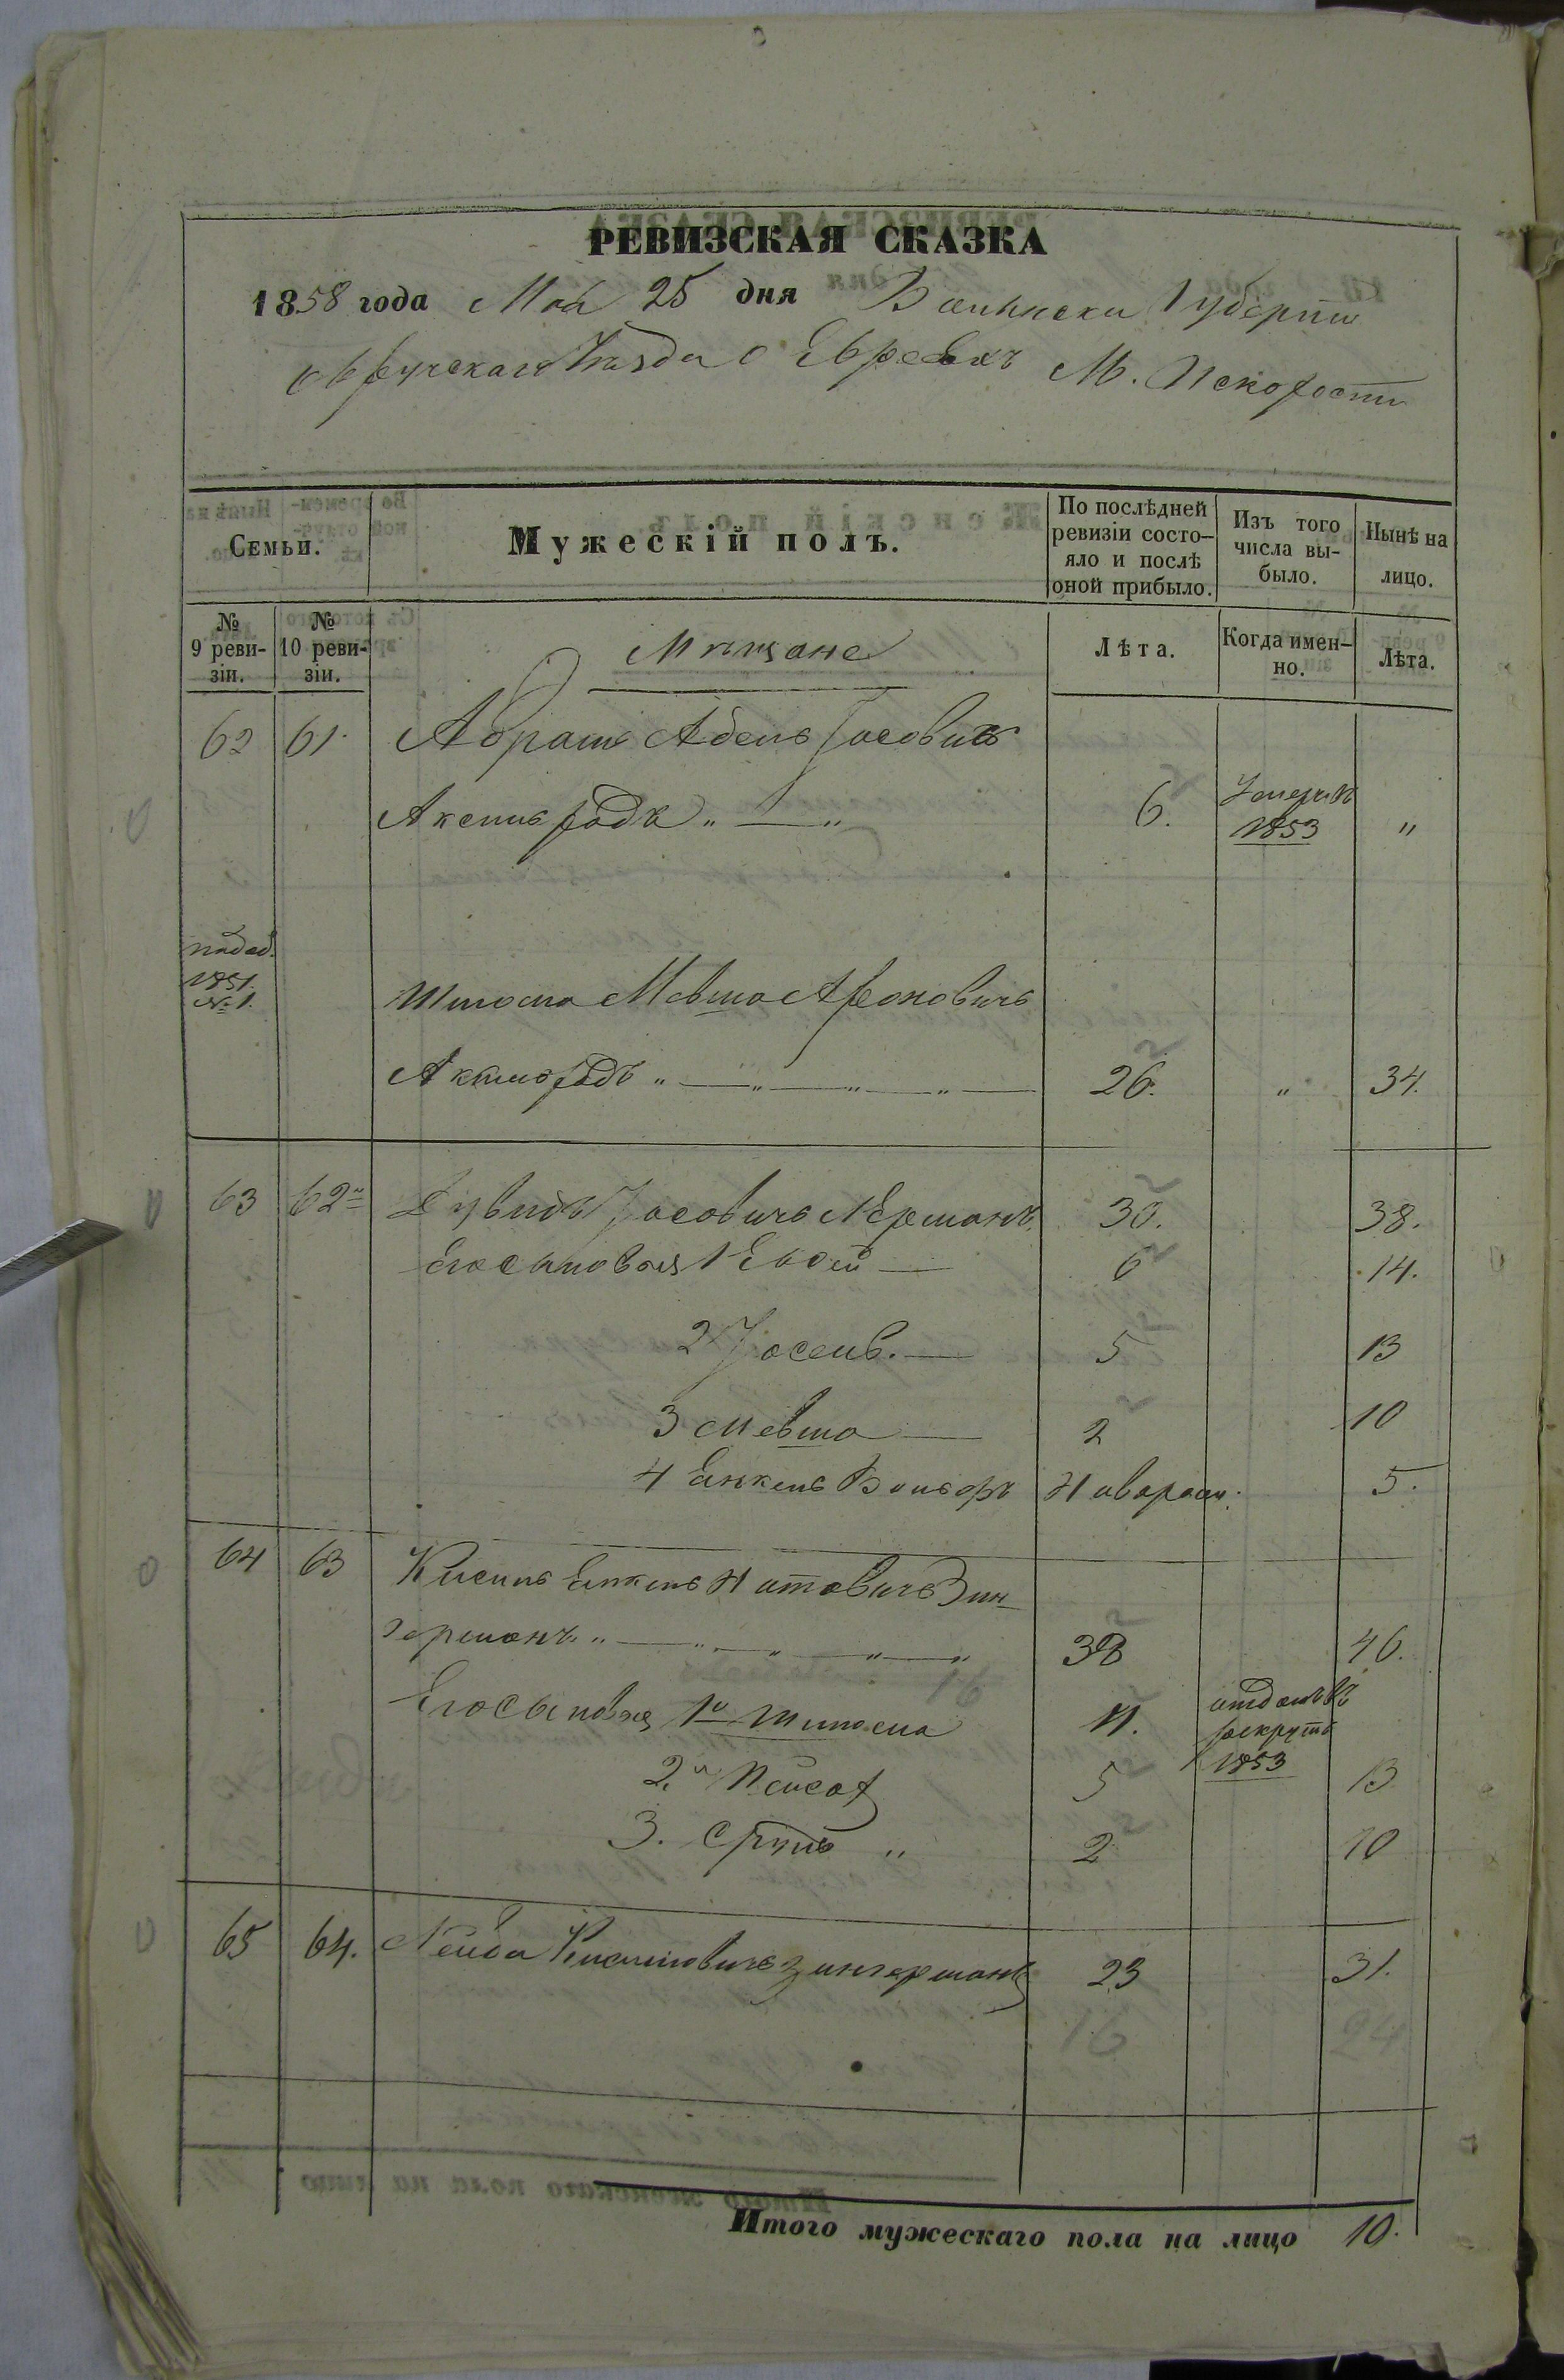 РЕВИЗСКАЯ СКАЗКА
1858 года Мая 25 дня Волынски Губерпии
Овручскаго Уѣзда о Евреяхъ М. Искорости
Семьи.
Мужескій полъ.
По послѣдней ревизіи состо-
яло и послѣ
оной прибыло.
Изъ того
числа вы-
было.
Нынѣ на
лицо.
№
9 реви-
зіи.
№
10 реви-
зіи.
Мѣщане
Лѣта.
Когда имен-
но.
Лѣта.
62 61. Абрамъ Абель Іосовичъ
Аксельродъ „ — „ 6. Умеръ въ
1853 „
1851.
№ 1.
Шлиома Мовша Ароновичъ
Аксельродъ „ — „ — „ — „ — 26. „ 34.
63 62й Давидъ Іосовичъ Лерманъ 30. 38.
Его сыновья 1 — 6 14.
2 Іосель. — 5 13
3 Мовша — 2 10
4 Янкель Вольфъ Наворожд. 5.
64 63 Кисиль Янкель Натовичъ Зин-
германъ „ — „ — „ — „ — „ 38 46.
Его Сыновья 1й Шлиома 11. отданъ въ
рекруты
1853
2.й Пейсах 5 13
3. Сруль „ 2 10
65 64. Лейба Кисилиовичъ Зингерманъ 23 31.
Итого мужескаго пола на лицо 10.